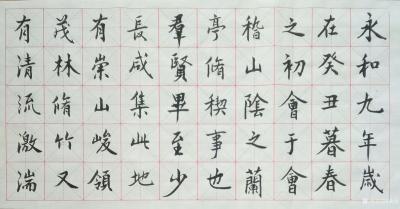 永和九年歲
在癸丑暮春
之初會于會
稽山陰之蘭
亭脩稧事也
羣賢畢至少
長咸集此地
有崇山峻領
茂林脩竹又
有清流激湍